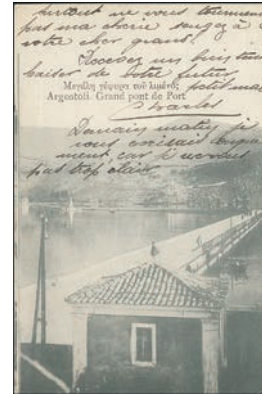 surtout ne vous tourmentez
pas ma chérie songez à
votre cher grand.
Recevez un bien tendre
baiser de votre futur
petit mari
Μεγάλη γέφυρα τοῦ λιμένος
Argostoli. Grand pont de Port
Charles
Demain matin je
vous écrirai
ment car je
pas trop clair